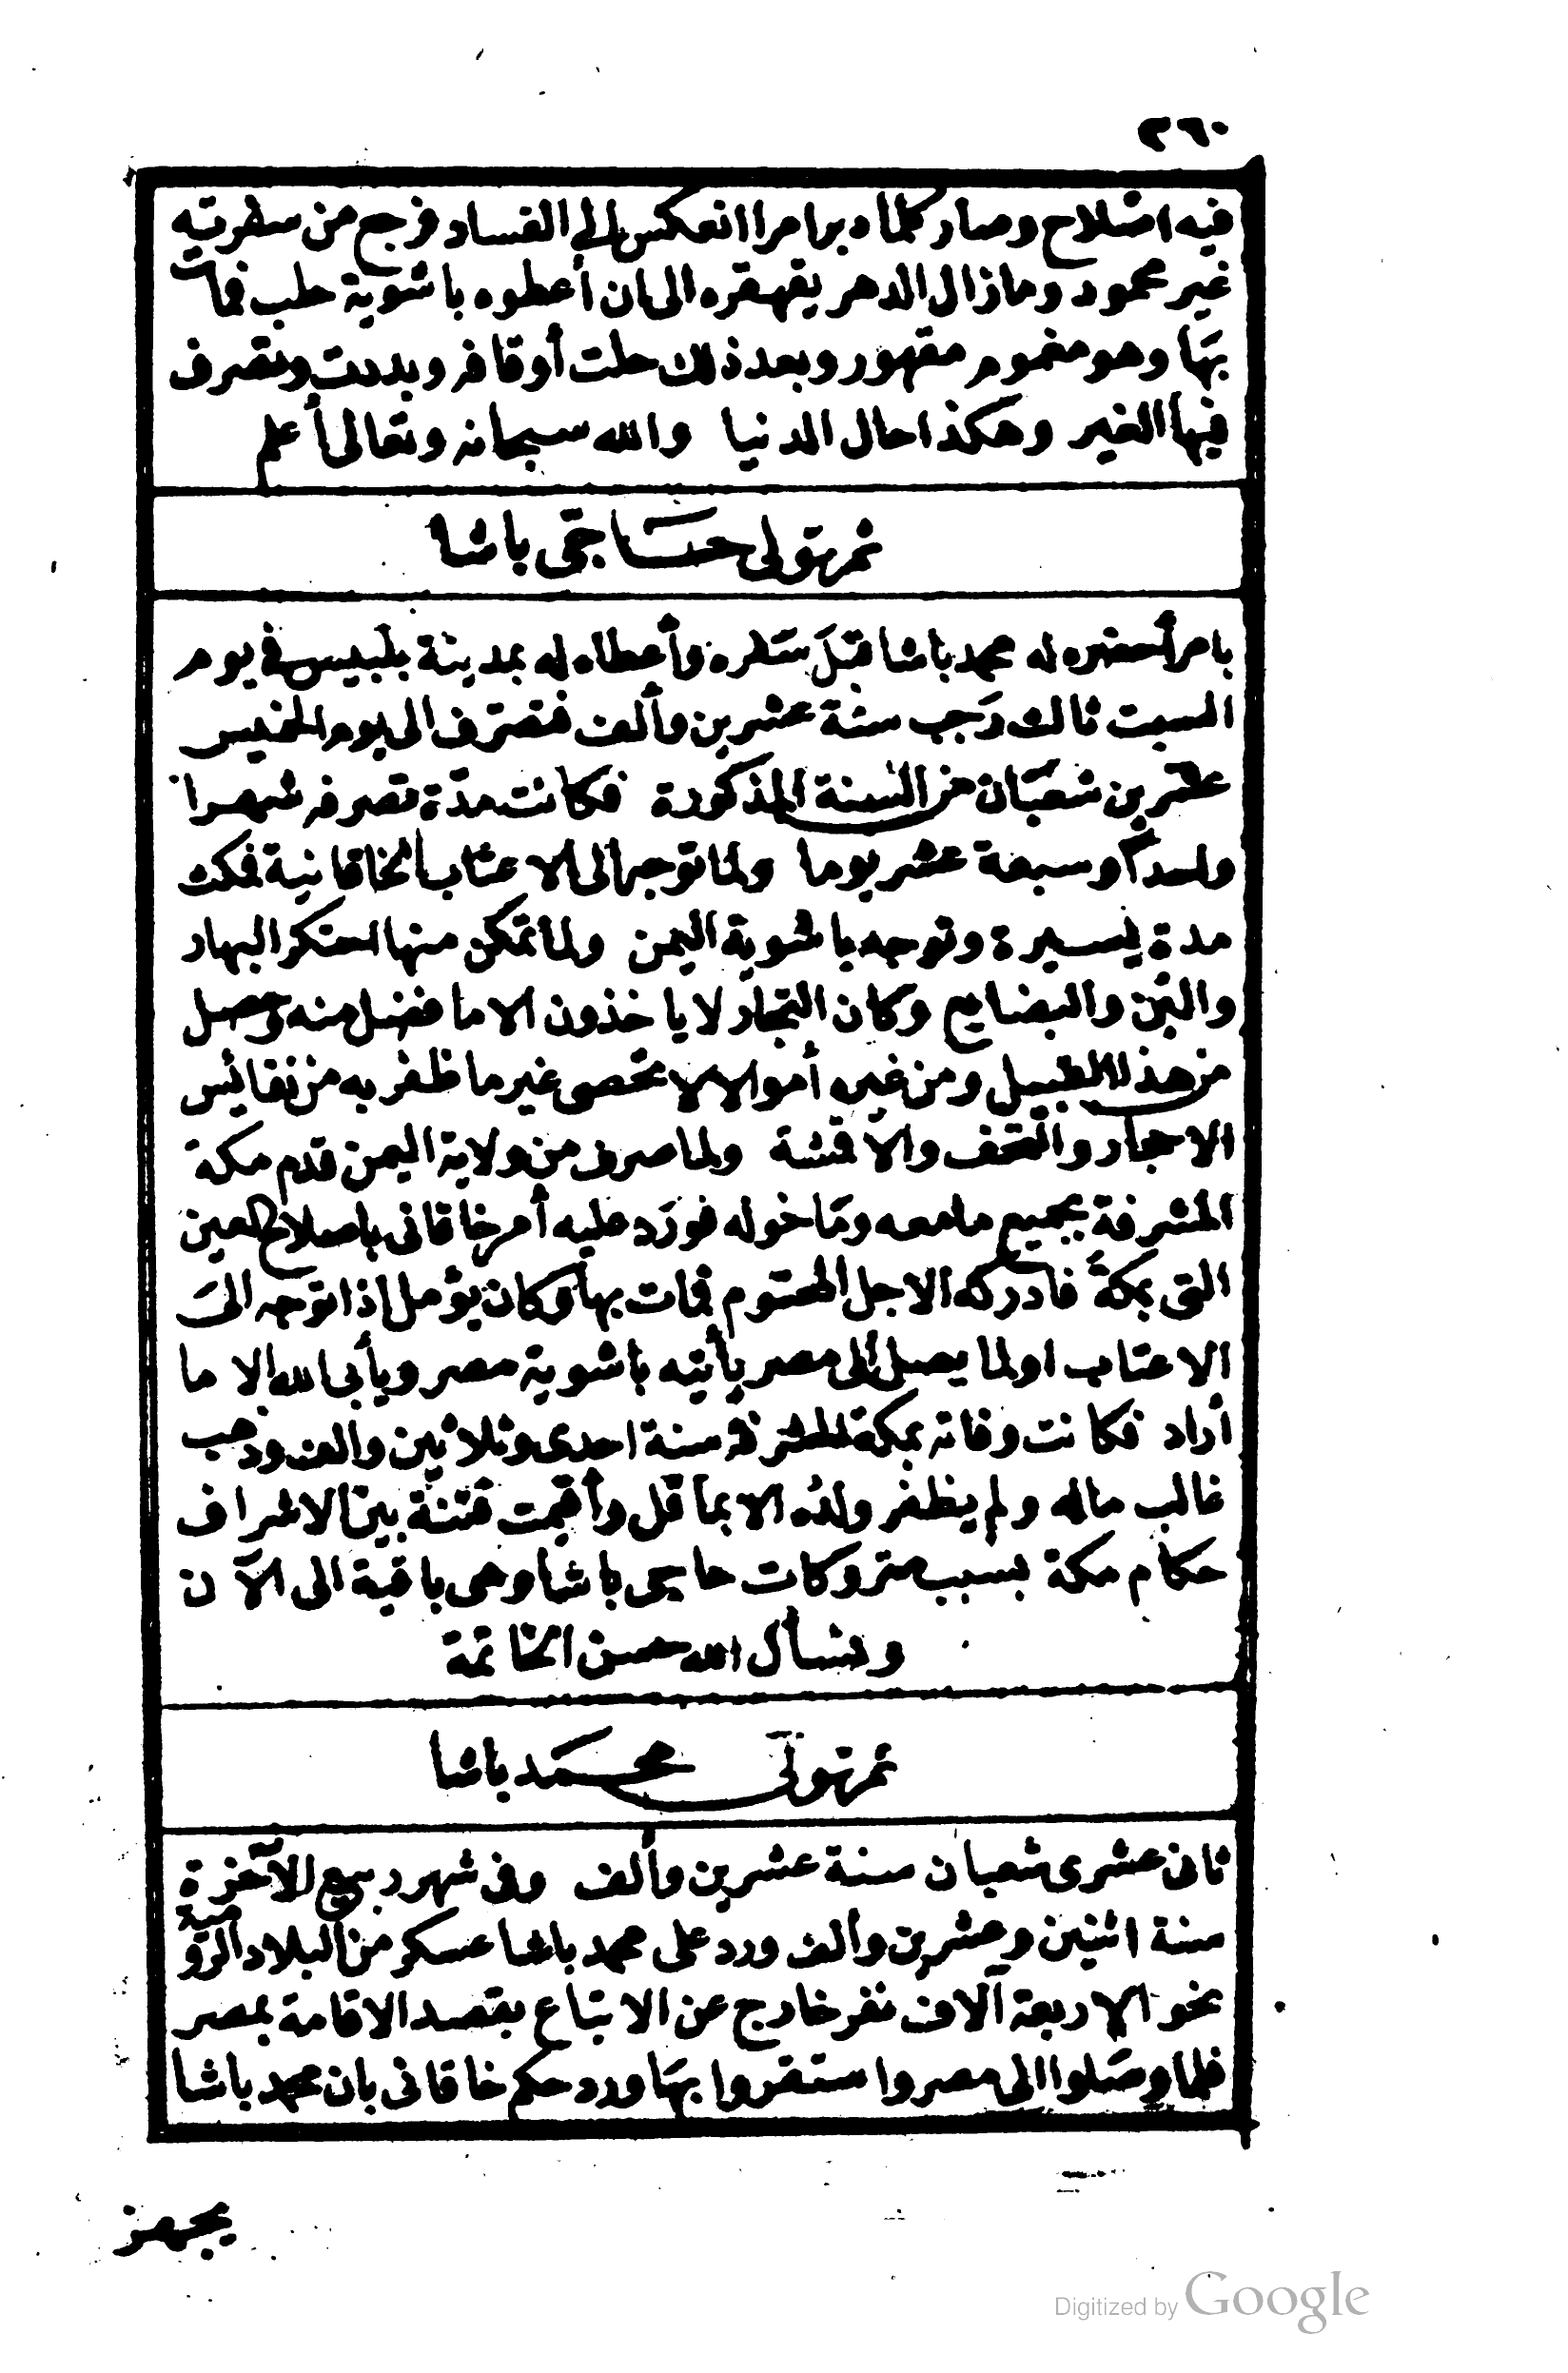 ٢٦٠
فيه اصلاح وصار كلما دبر امرا انعكس الى الفساد فرجع من سفرته
غير محمود وما زال الدهر يقهقره الى ان أعطوه باشوية حلب فمات
بها وهو مغموم مقهور وبعد ذلك حلت أوقافه وبددت وتصرف
فيها الغير وهكذا حال الدنيا والله سبحانه وتعالى أعلم
ثم تولى حسَاجى باشا
بامر أحضره له محمد باشا قبل سَفره وأعطاه له بمدينة بلبيس فى يوم
السبت ثالث رَجب سنة عشرين وألف فتصَرف الى يوم الخميس
عشرين شعبَان من السنة المذكورة فكانت مدّة تصرفه شهرا
واحدا وسبعة عشر يوما ولما توجه الى الاعتاب الخاقانية فمكث
مدة يسيرة وتوجه باشوية اليمن ولما تمكن منها احتكر البهار
والبن والبضايع وكان التجار لا ياخذون الا ما فضل منه وحصل
من هذا القبيل ومن غيره أموالا لا تحصى غير ما ظفر به من نفائس
الاحجار والتحف والأقمشة ولما صرف من ولاية اليمن قدم مكة
المشرفة بجميع ما معه ومَا خوله فورَد عليه أمر خاقانى باصلاح العين
التى بمكة فادركه الاجل المحتوم فمات بها وكان يؤمل اذا توجه الىَ
الاعتاب او لما يصل الى مصر يأتيه باشوية مصر ويأبى الله الا ما
أراد فكانت وفاته بمكة المشرفة سنة احدى وثلاثين والف وذهب
غالب ماله ولم يظفر ولده الا بما قل وأقيمت فتنة بين الاشراف
حكام مكة بسبب متروكات حاجى باشا وهى باقية الى الآن
ونسأل الله حسن الخاتمة
ثم تولى محمَد باشا
ثانى عشرى شعبان سنة عشرين وألف وفى شهر ربيع الآخرة
سنة اثنين وعشرين والف ورد على محمد باشا عسكر من البلاد الرومية
نحو الاربعة آلاف نفر خارج عن الاتباع بقصد الاقامة بمصر
فلما وصَلوا الى مصر واستقروا بهَا ورد حكم خاقانى بان محمد باشا
يجهز
Digitized by Google